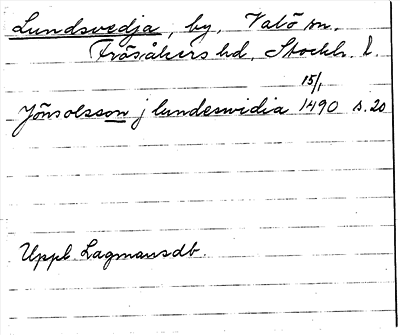 Lundsvedja, by, Valö sn.
Frösåkers hd, Stockh. l.
15/1
Jönsolsson j lundeswidia 1490 s. 20
Uppl Lagmansdb.